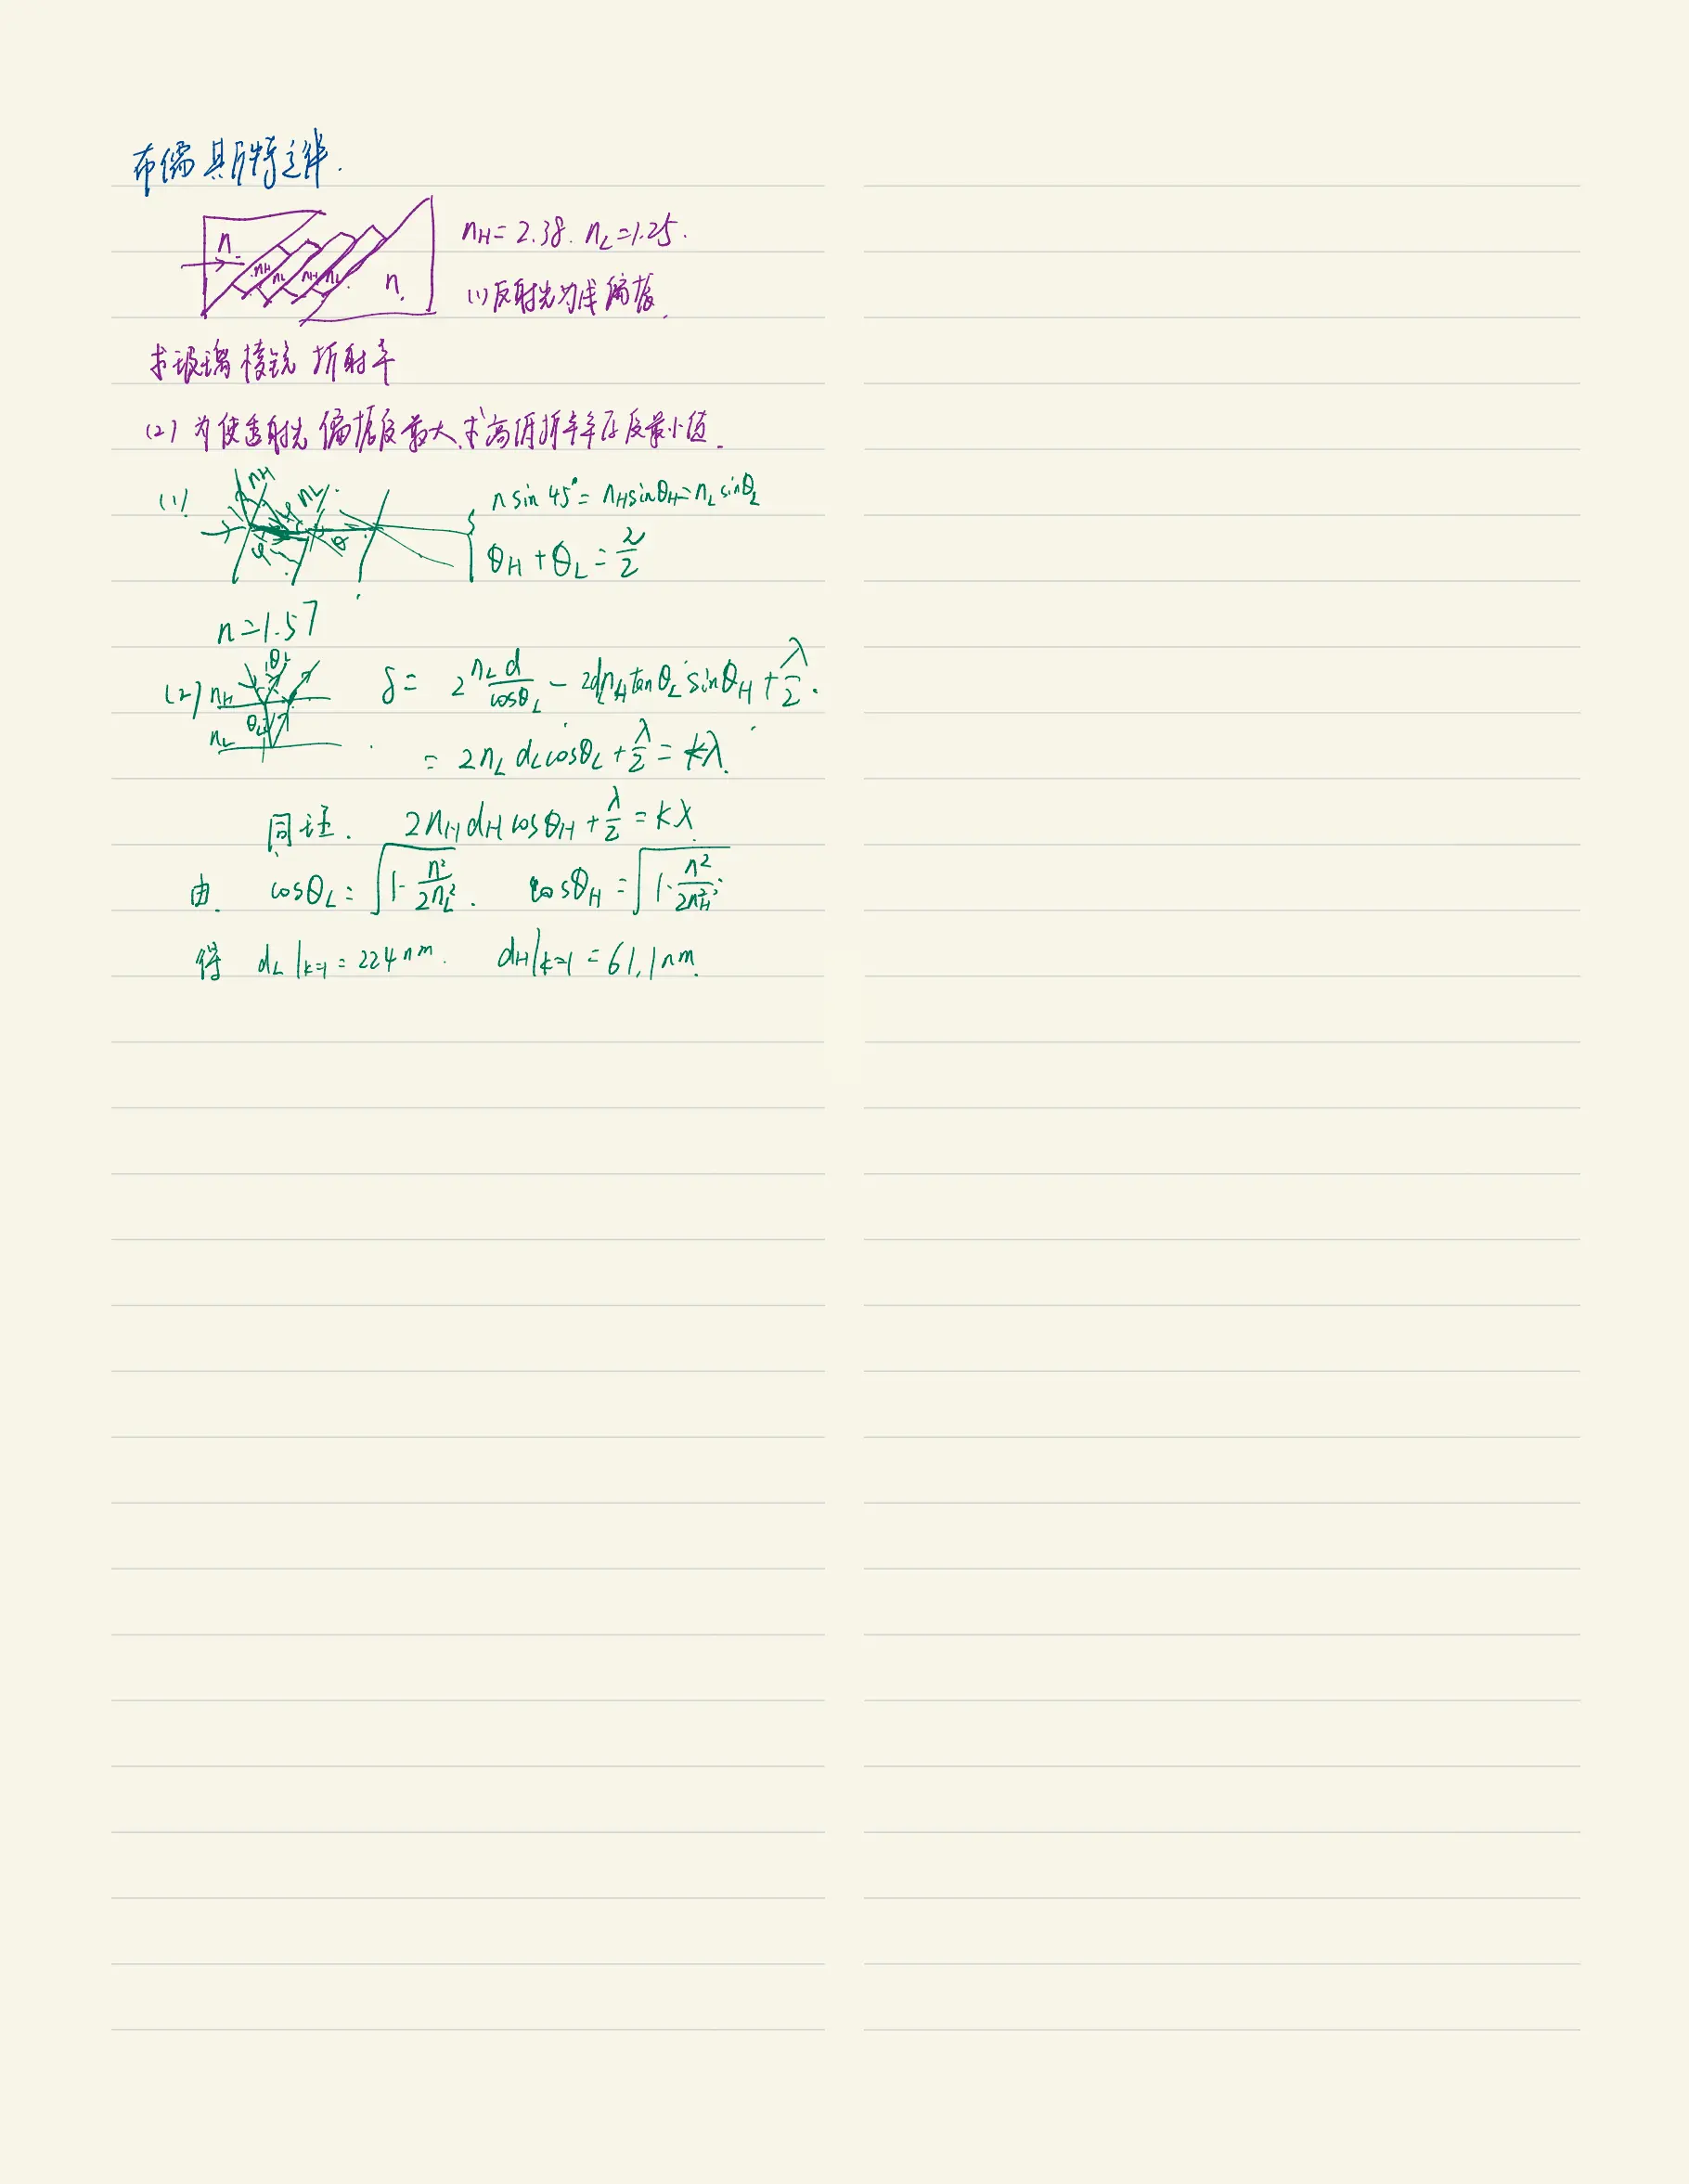 布儒斯特定律.
n nH nL nH nL n
nH=2.38. nL=1.25.
(1)反射光为线偏振.
求玻璃棱镜折射率
(2)为使透射光偏振度最大,求高低折射率厚度最小值.
(1) nH nL n sin45°=nHsinθH=nLsinθL
θH+θL=π/2
n=1.57
(2) nH nL θL θL δ= 2 nLd/cosθL - 2dLnHtanθLsinθH+λ/2.
= 2nLdLcosθL+λ/2=kλ.
同理. 2nHdHcosθH+λ/2=kλ
由. cosθL=√(1-n²/2nL²). cosθH=√(1-n²/2nH²).
得 dL|k=1=224nm. dH|k=1=61.1nm.